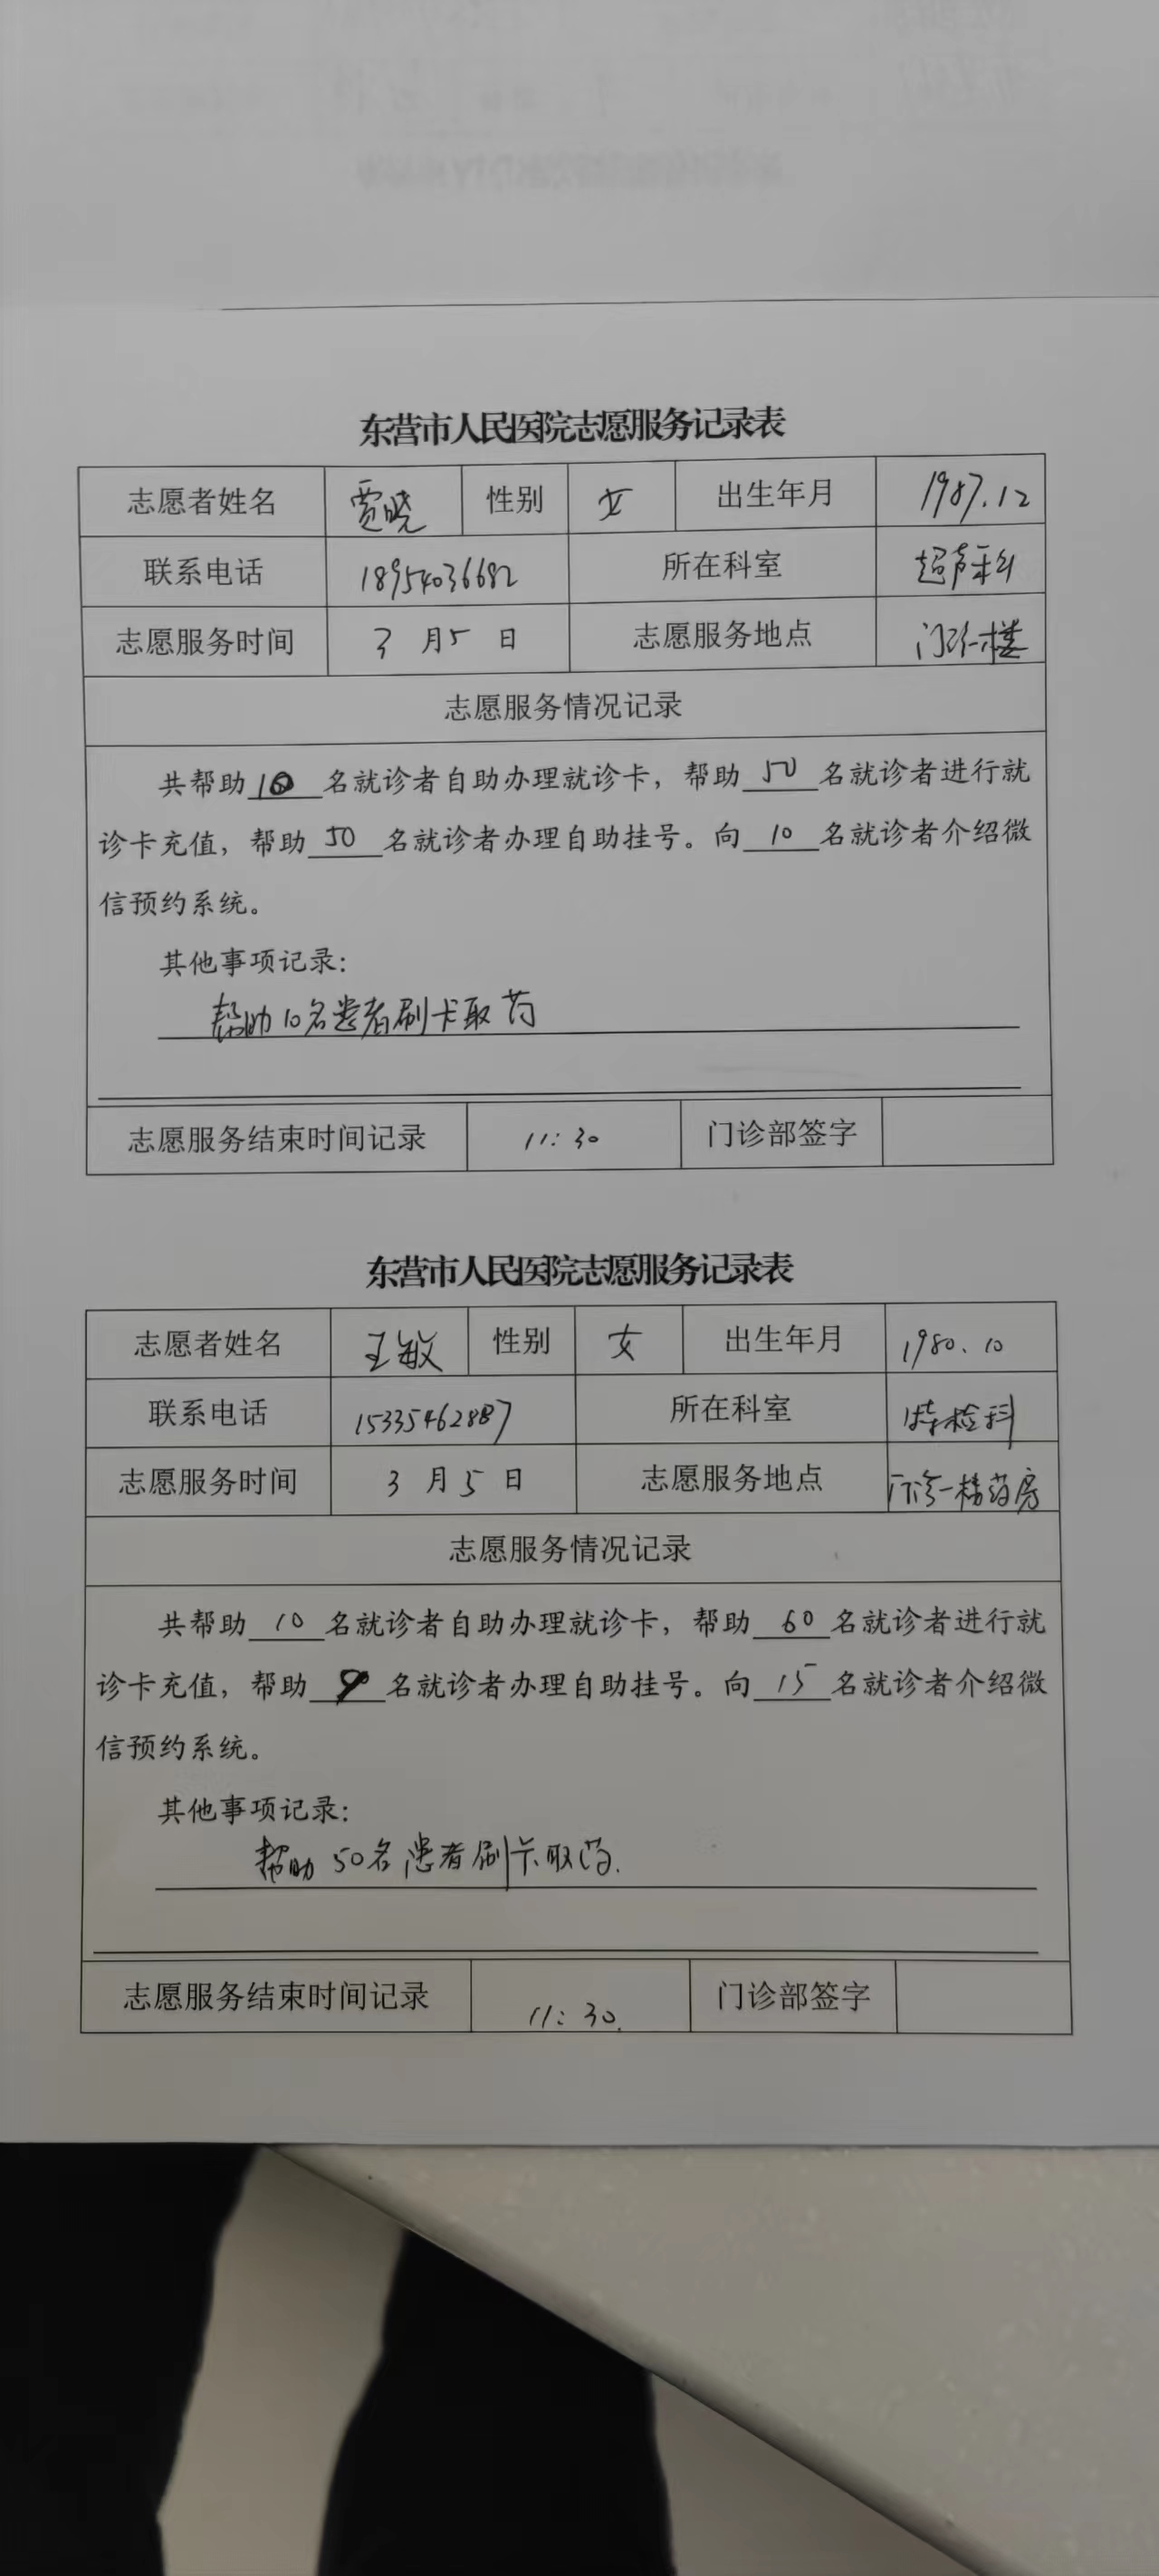 东营市人民医院志愿服务记录表
志愿者姓名 贾晓 性别 女 出生年月 1987.12
联系电话 18954036682 所在科室 超声科
志愿服务时间 3 月 5 日 志愿服务地点 门诊一楼
志愿服务情况记录
共帮助 10 名就诊者自助办理就诊卡，帮助 50 名就诊者进行就
诊卡充值，帮助 50 名就诊者办理自助挂号。向 10 名就诊者介绍微
信预约系统。
其他事项记录：
帮助10名患者刷卡取药
志愿服务结束时间记录 11：30 门诊部签字
东营市人民医院志愿服务记录表
志愿者姓名 王敏 性别 女 出生年月 1980.10
联系电话 15335462887 所在科室 特检科
志愿服务时间 3 月 5 日 志愿服务地点 门诊一楼药房
志愿服务情况记录
共帮助 10 名就诊者自助办理就诊卡，帮助 60 名就诊者进行就
诊卡充值，帮助 名就诊者办理自助挂号。向 15 名就诊者介绍微
信预约系统。
其他事项记录：
帮助50名患者刷卡取药.
志愿服务结束时间记录 11：30. 门诊部签字